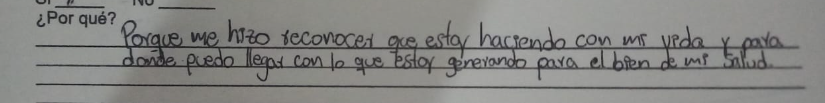 NO
¿Por qué?
Porque me hizo reconocer que estoy haciendo con mi vida y para
donde puedo llegar con lo que estoy generando para el bien de mi salud.